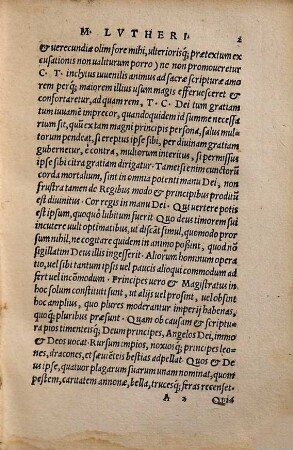 M. LVTHERI. 2
& uerecundiæ olim fore mihi, ulteriorisq; prætextum ex
cusationis non ualiturum porro) ne non promoueretur
C. T. inclytus iuuenilis animus ad sacræ scripturæ amo
rem perq; maiorem illius usum magis efferuesceret &
confortaretur, ad quam rem, T. C. Dei tum gratiam
tum iuuamẽ imprecor, quandoquidem id summe necessa
rium sit, qui ex tam magni principis persona, salus mul
torum pendeat, si ereptus ipse sibi, per diuinam gratiam
gubernetur, è contra, multorum interitus, si permissus
ipse sibi citra gratiam dirigatur. Tametsi enim cunctorũ
corda mortalium, sint in omnia potenti manu Dei, non
frustra tamen de Regibus modo & principibus prodiit
est diuinitus. Cor regis in manu Dei. Quò uertere pot
est ipsum, quoquò lubitum fuerit Quo deus timorem sui
incutere uult optimatibus, ut discãt simul, quodo pror
sum nihil, ne cogitare quidem in animo possint, quod nõ
sigillatim Deus illis ingesserit. Aliorum hominum opera
tio, uel sibi tantum ipsis uel paucis alioqui commodum ad
fert uel incõmodum. Principes uero & Magistratus in
hoc solum constituti sunt, ut alijs uel prosint, uel obsint
hoc amplius, quo plures moderantur imperij habenas,
quoq; pluribus præsunt. Quam ob causam & scriptu
ra pios timentesq; Deum principes, Angelos Dei, immo
& Deos uocat. Rursum impios, noxiosq; principes leo=
nes, dracones, et sæuẽteis bestias adpellat. Quos & De
us ipse, quatuor plagarum suarum unam nominat, quom
pestem, caritatem annonæ, bella, trucesq; feras recenset.
A 2 Quia